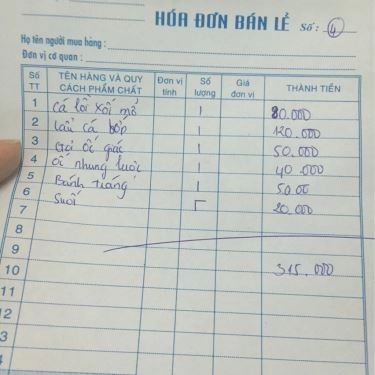 HÓA ĐƠN BÁN LẺ Số: 4
Họ tên người mua hàng:
Đơn vị cơ quan:
Số TT TÊN HÀNG VÀ QUY CÁCH PHẨM CHẤT Đơn vị tính Số lượng Giá đơn vị THÀNH TIỀN
1 Cá lồi xối mỡ 1 80.000
2 Lẩu cá bớp 1 120.000
3 Gỏi ốc giác 1 50.000
4 ốc nhung luộc 1 40.000
5 Bánh tráng 1 50.00
6 Suối 20.000
7
8
9
10 315.000
11
12
3
4